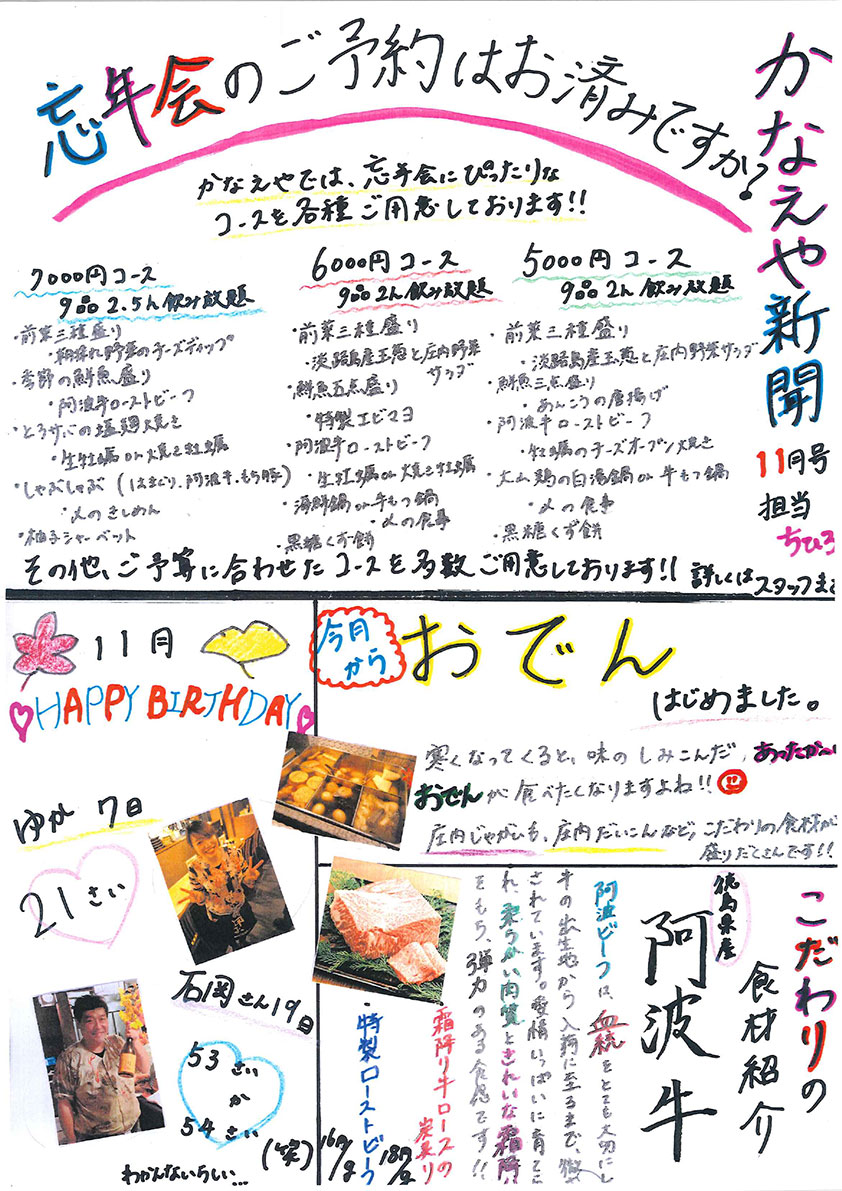 かなえや新聞
11月号
担当
ちひろ
忘年会のご予約はお済みですか?
かなえやでは、忘年会にぴったりな
コースを各種ご用意しております!!
7000円コース
9品2.5h飲み放題
・前菜三種盛り
・朝採れ野菜のチーズディップ
・季節の鮮魚盛り
・阿波牛ローストビーフ
・とろサバの塩麹焼き
・生牡蠣or焼き牡蠣
・しゃぶしゃぶ(はまぐり、阿波牛、もち豚)
・〆のきしめん
・柚子シャーベット
6000円コース
9品2h飲み放題
・前菜三種盛り
・淡路島産玉葱と庄内野菜
サラダ
・鮮魚五点盛り
・特製エビマヨ
・阿波牛ローストビーフ
・生牡蠣or焼き牡蠣
・海鮮鍋or牛もつ鍋
・〆の食事
・黒糖くず餅
5000円コース
9品2h飲み放題
・前菜三種盛り
・淡路島産玉葱と庄内野菜サラダ
・鮮魚三点盛り
・あんこうの唐揚げ
・阿波牛ローストビーフ
・牡蠣のチーズオーブン焼き
・大山鶏の白湯鍋or牛もつ鍋
・〆の食事
・黒糖くず餅
その他、ご予算に合わせたコースを多数ご用意しております!!
詳しくはスタッフまで
11月
HAPPY BIRTHDAY
ゆか 7日
21さい
石岡さん19日
53さい
か
54さい
(笑)
わかんないらしい…
今月
から
おでん
はじめました。
寒くなってくると、味のしみこんだ、あったか〜い
おでんが食べたくなりますよね!!
庄内じゃがいも、庄内だいこんなど、こだわりの食材が
盛りだくさんです!!
こだわりの
食材紹介
徳島県産
阿波牛
阿波ビーフは、血統をとても大切にし
牛の出生地から入荷に至るまで、徹
されています。愛情いっぱいに育て
れ、柔らかい肉質ときれいな霜降
をもち、弾力のある食感です!!
・霜降り牛ロースの
炭炙り
18円/g
・特製ローストビーフ
16円/g